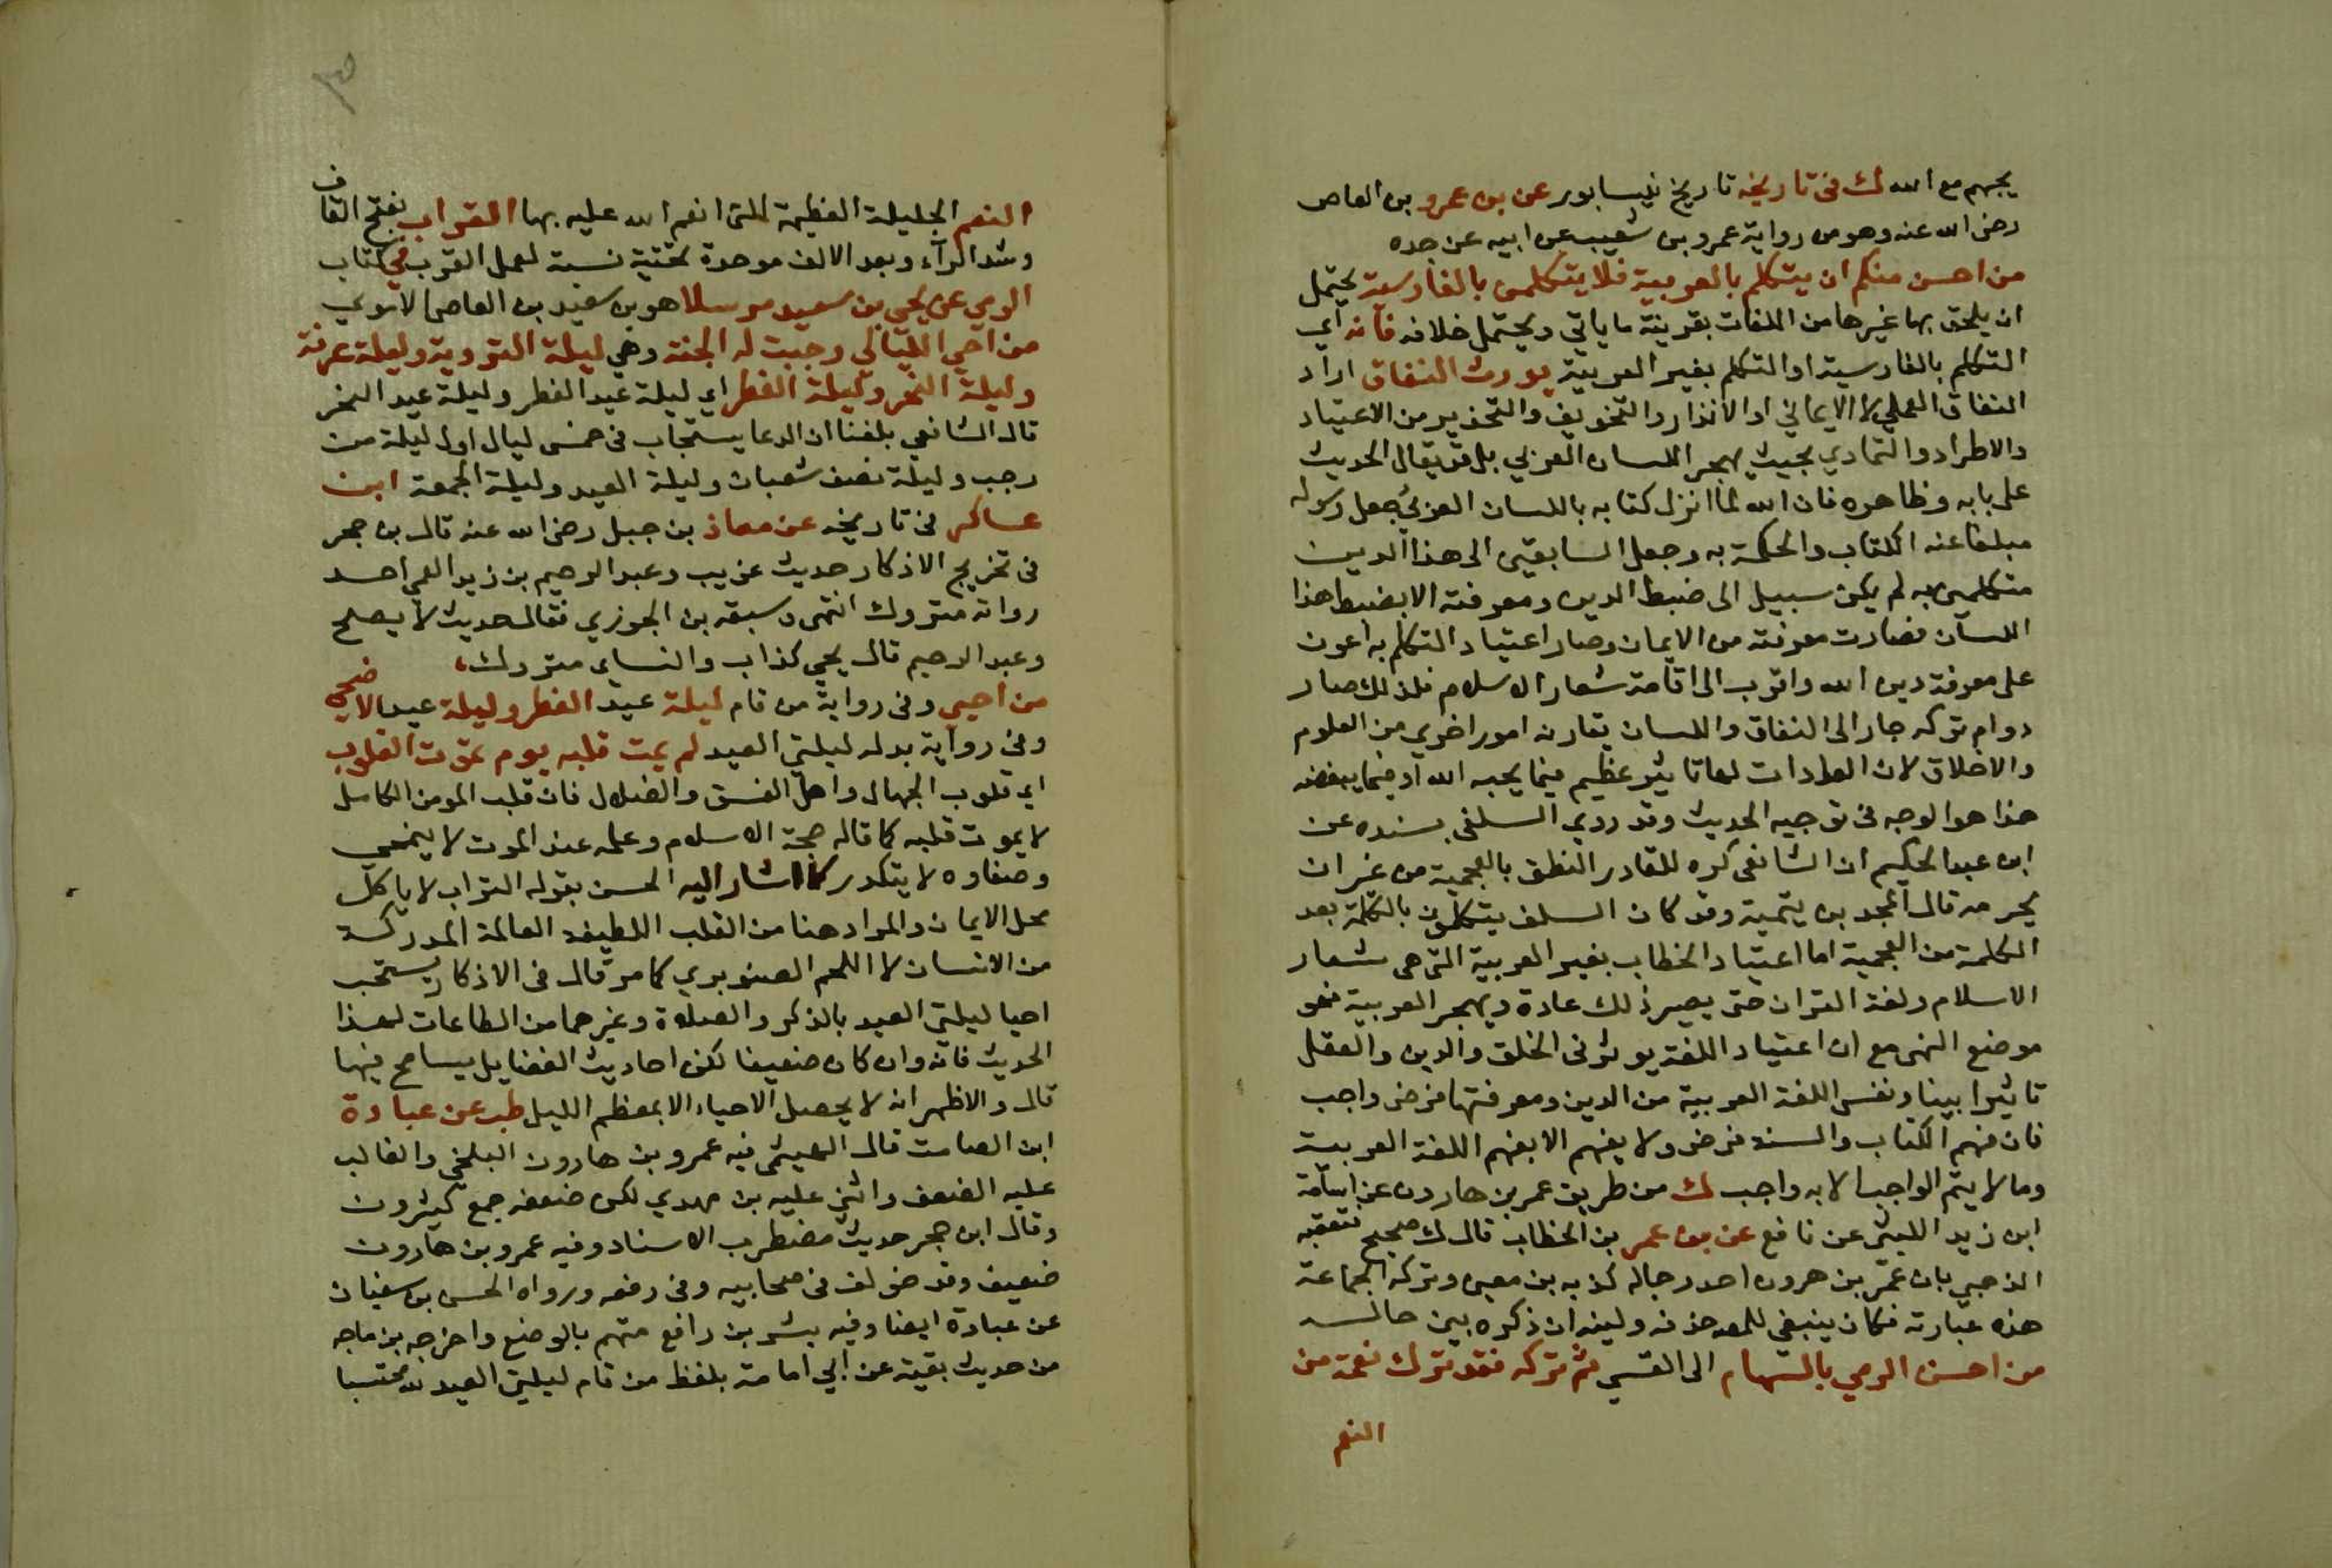 يحبهم مع الله ك في تاريخه تاريخ نيسابور عن بن عمرو بن العاص
رضي الله عنه وهو من رواية عمرو بن شعيب عن ابيه عن جده
من احسن منكم ان يتكلم بالعربية فلا يتكلمن بالفارسية يحتمل
ان يلحق بها غيرها من اللغات بقرينة ما ياتي ويحتمل خلافه فانه اي
التكلم بالفارسية او التكلم بغير العربية يورث النفاق اراد
النفاق العملي لا الايماني او الانذار والتخويف والتحذير من الاعتياد
والاطراد والتمادي بحيث يهجر اللسان العربي بل قد يقال الحديث
على بابه وظاهره فان الله لما انزل كتابه باللسان العربي جعل رسوله
مبلغا عنه الكتاب والحكمة به وجعل السابقين الى هذا الدين
متكلمين به لم يكن سبيل الى ضبط الدين ومعرفته الا بضبط هذا
اللسان فصارت معرفته من الايمان وصار اعتياد التكلم به اعون
على معرفة دين الله واقرب الى اقامة شعار الاسلام فلذلك صار
دوام تركه جار الى النفاق واللسان يقارنه امور اخري من العلوم
والاخلاق لان العادات لها تاثير عظيم فيما يحبه الله او فيما يبغضه
هذا هو الوجه في توجيه الحديث وقد روي السلفي بسنده عن
ابن عبد الحكيم ان الشافعي كره للقادر النطق بالعجمية من غير ان
يحرمه قال المجد بن تيمية وقد كان السلف يتكلمون بالكلمة بعد
الكلمة من العجمية اما اعتياد الخطاب بغير العربية التي هي شعار
الاسلام ولغة القران حتى يصير ذلك عادة ويهجر العربية فهو
موضع النهي مع ان اعتياد اللغة يوثر في الخلق والدين والعقل
تاثيرا بينا ونفس اللغة العربية من الدين ومعرفتها فرض واجب
فان فهم الكتاب والسنة فرض ولا يفهم الا بفهم اللغة العربية
وما لا يتم الواجب الا به واجب ك من طريق عمر بن هارون عن اسامة
ابن زيد الليثي عن نافع عن بن عمر بن الخطاب قال ك صحيح فتعقبه
الذهبي بان عمر بن هرون احد رجاله كذبه بن معين وتركه الجماعة
هذه عبارته فكان ينبغي للمص حذفه وليته اذ ذكره بين حاله
من احسن الرمي بالسهام الى القسي ثم تركه فقد ترك نعمة من
النعم
النعم الجليلة العظيمة التي انعم الله عليه بها القراب بفتح القاف
وشد الرآء وبعد الالف موحدة تحتية نسبة لعمل القرب في كتاب
الرمي عن يحي بن سعيد مرسلا هو بن سعيد بن العاص الاموي
من احي الليالي وجبت له الجنة وهي ليلة التروية وليلة عرفة
وليلة النحر وليلة الفطر اي ليلة عيد الفطر وليلة عيد النحر
قال الشافعي بلغنا ان الدعا يستجاب في خمس ليال اول ليلة من
رجب وليلة نصف شعبان وليلة العيد وليلة الجمعة ابن
عساكر في تاريخه عن معاذ بن جبل رضي الله عنه قال بن حجر
في تخريج الاذكار حديث غريب وعبد الرحيم بن زيد العمي احد
رواته متروك انتهى وسبقه بن الجوزي فقال حديث لا يصح
وعبد الرحيم قال يحي كذاب والنساي متروك
من احيي وفي رواية من قام ليلة عيد الفطر وليلة عيد الاضحى
وفي رواية بدله ليلتي العيد لم يمت قلبه يوم تموت القلوب
اي قلوب الجهال واهل الفسق والضلال فان قلب المومن الكامل
لا يموت قلبه كما قاله حجة الاسلام وعلمه عند الموت لا ينمحي
وصفاوه لا يتكدر كما اشار اليه الحسن بقوله التراب لا ياكل
محل الايمان والمراد هنا من القلب اللطيفة العالمة المدركة
من الانسان لا اللحم الصنوبري كما مر قال في الاذكار يستحب
احيا ليلتي العيد بالذكر والصلاة وغيرهما من الطاعات لهذا
الحديث فانه وان كان ضعيفا لكن احاديث الفضايل يسامح فيها
قال والاظهر انه لا يحصل الاحياء الا بمعظم الليل طب عن عبادة
ابن الصامت قال الهيثمي فيه عمرو بن هارون البلخي والغالب
عليه الضعف واثني عليه بن مهدي لكن ضعفه جمع كثيرون
وقال ابن حجر حديث مضطرب الاسناد وفيه عمرو بن هارون
ضعيف وقد خولف في صحابيه وفي رفعه ورواه الحسن بن سفيان
عن عبادة ايضا وفيه بشر بن رافع متهم بالوضع واخرجه بن ماجه
من حديث بقية عن ابي امامة بلفظ من قام ليلتي العيد لله محتسبا